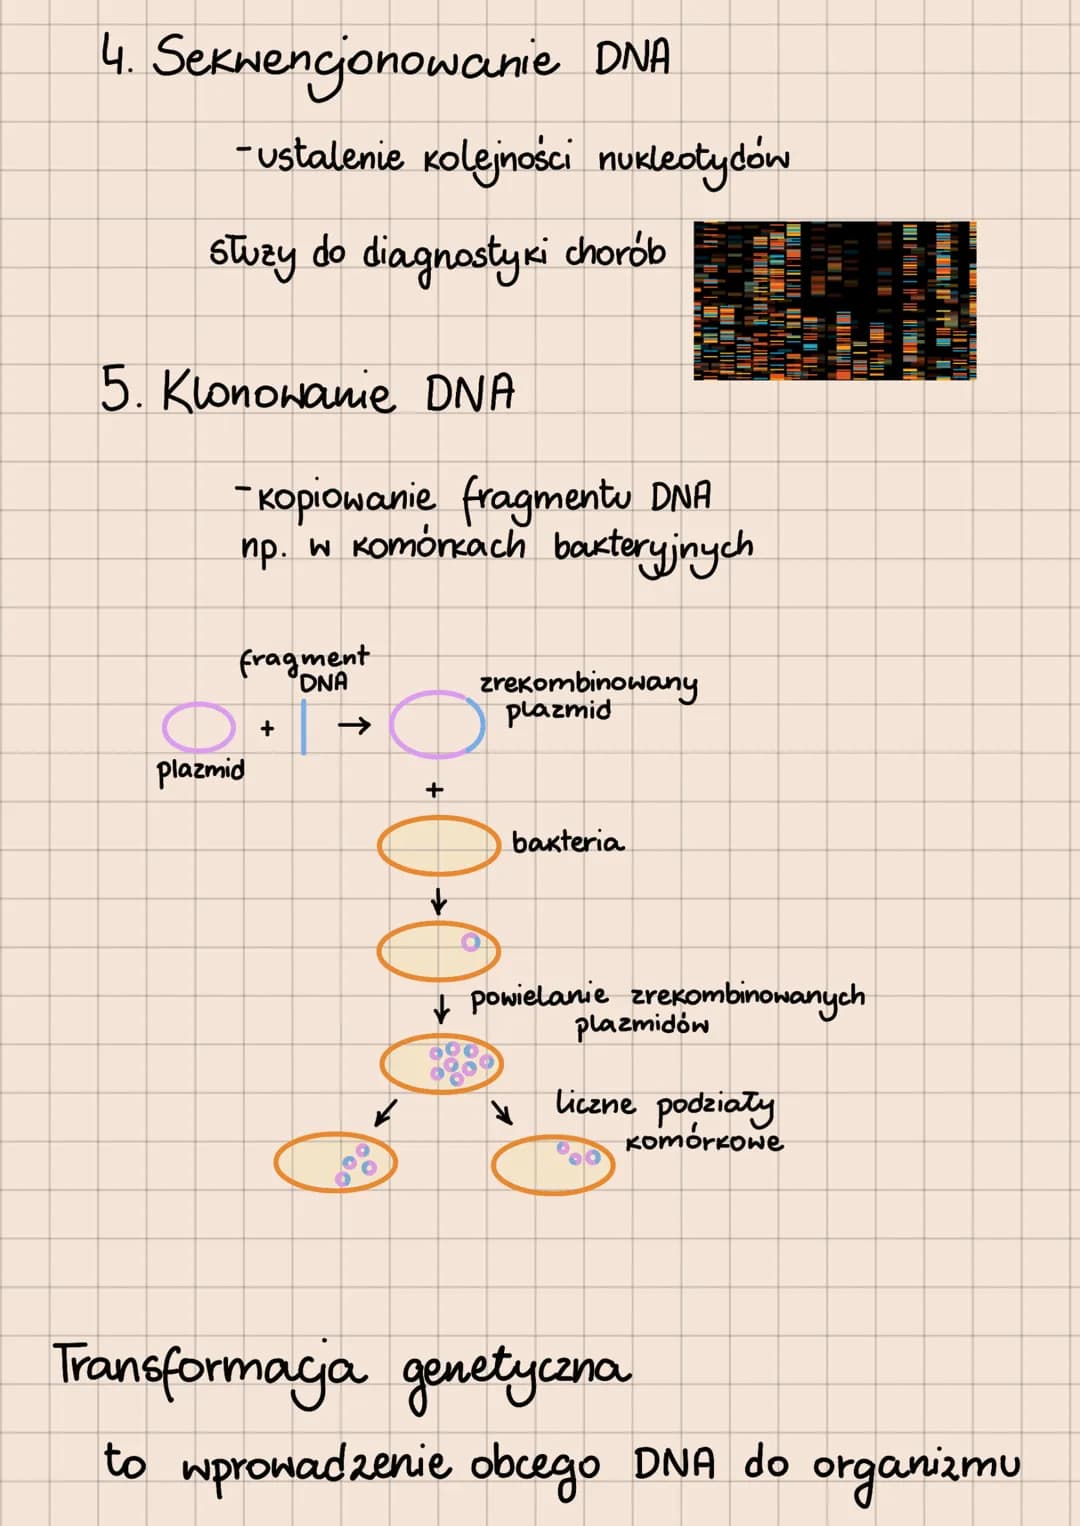 4. Sekwencjonowanie DNA
-ustalenie kolejności nukleotydów
służy do diagnostyki chorób
5. Klonowanie DNA
-kopiowanie fragmentu DNA
np. w komórkach bakteryjnych
fragment
DNA
zrekombinowany
plazmid
+
→
plazmid
+
bakteria
powielanie zrekombinowanych
plazmidów
liczne podziały
komórkowe
Transformacja genetyczna
to wprowadzenie obcego DNA do organizmu